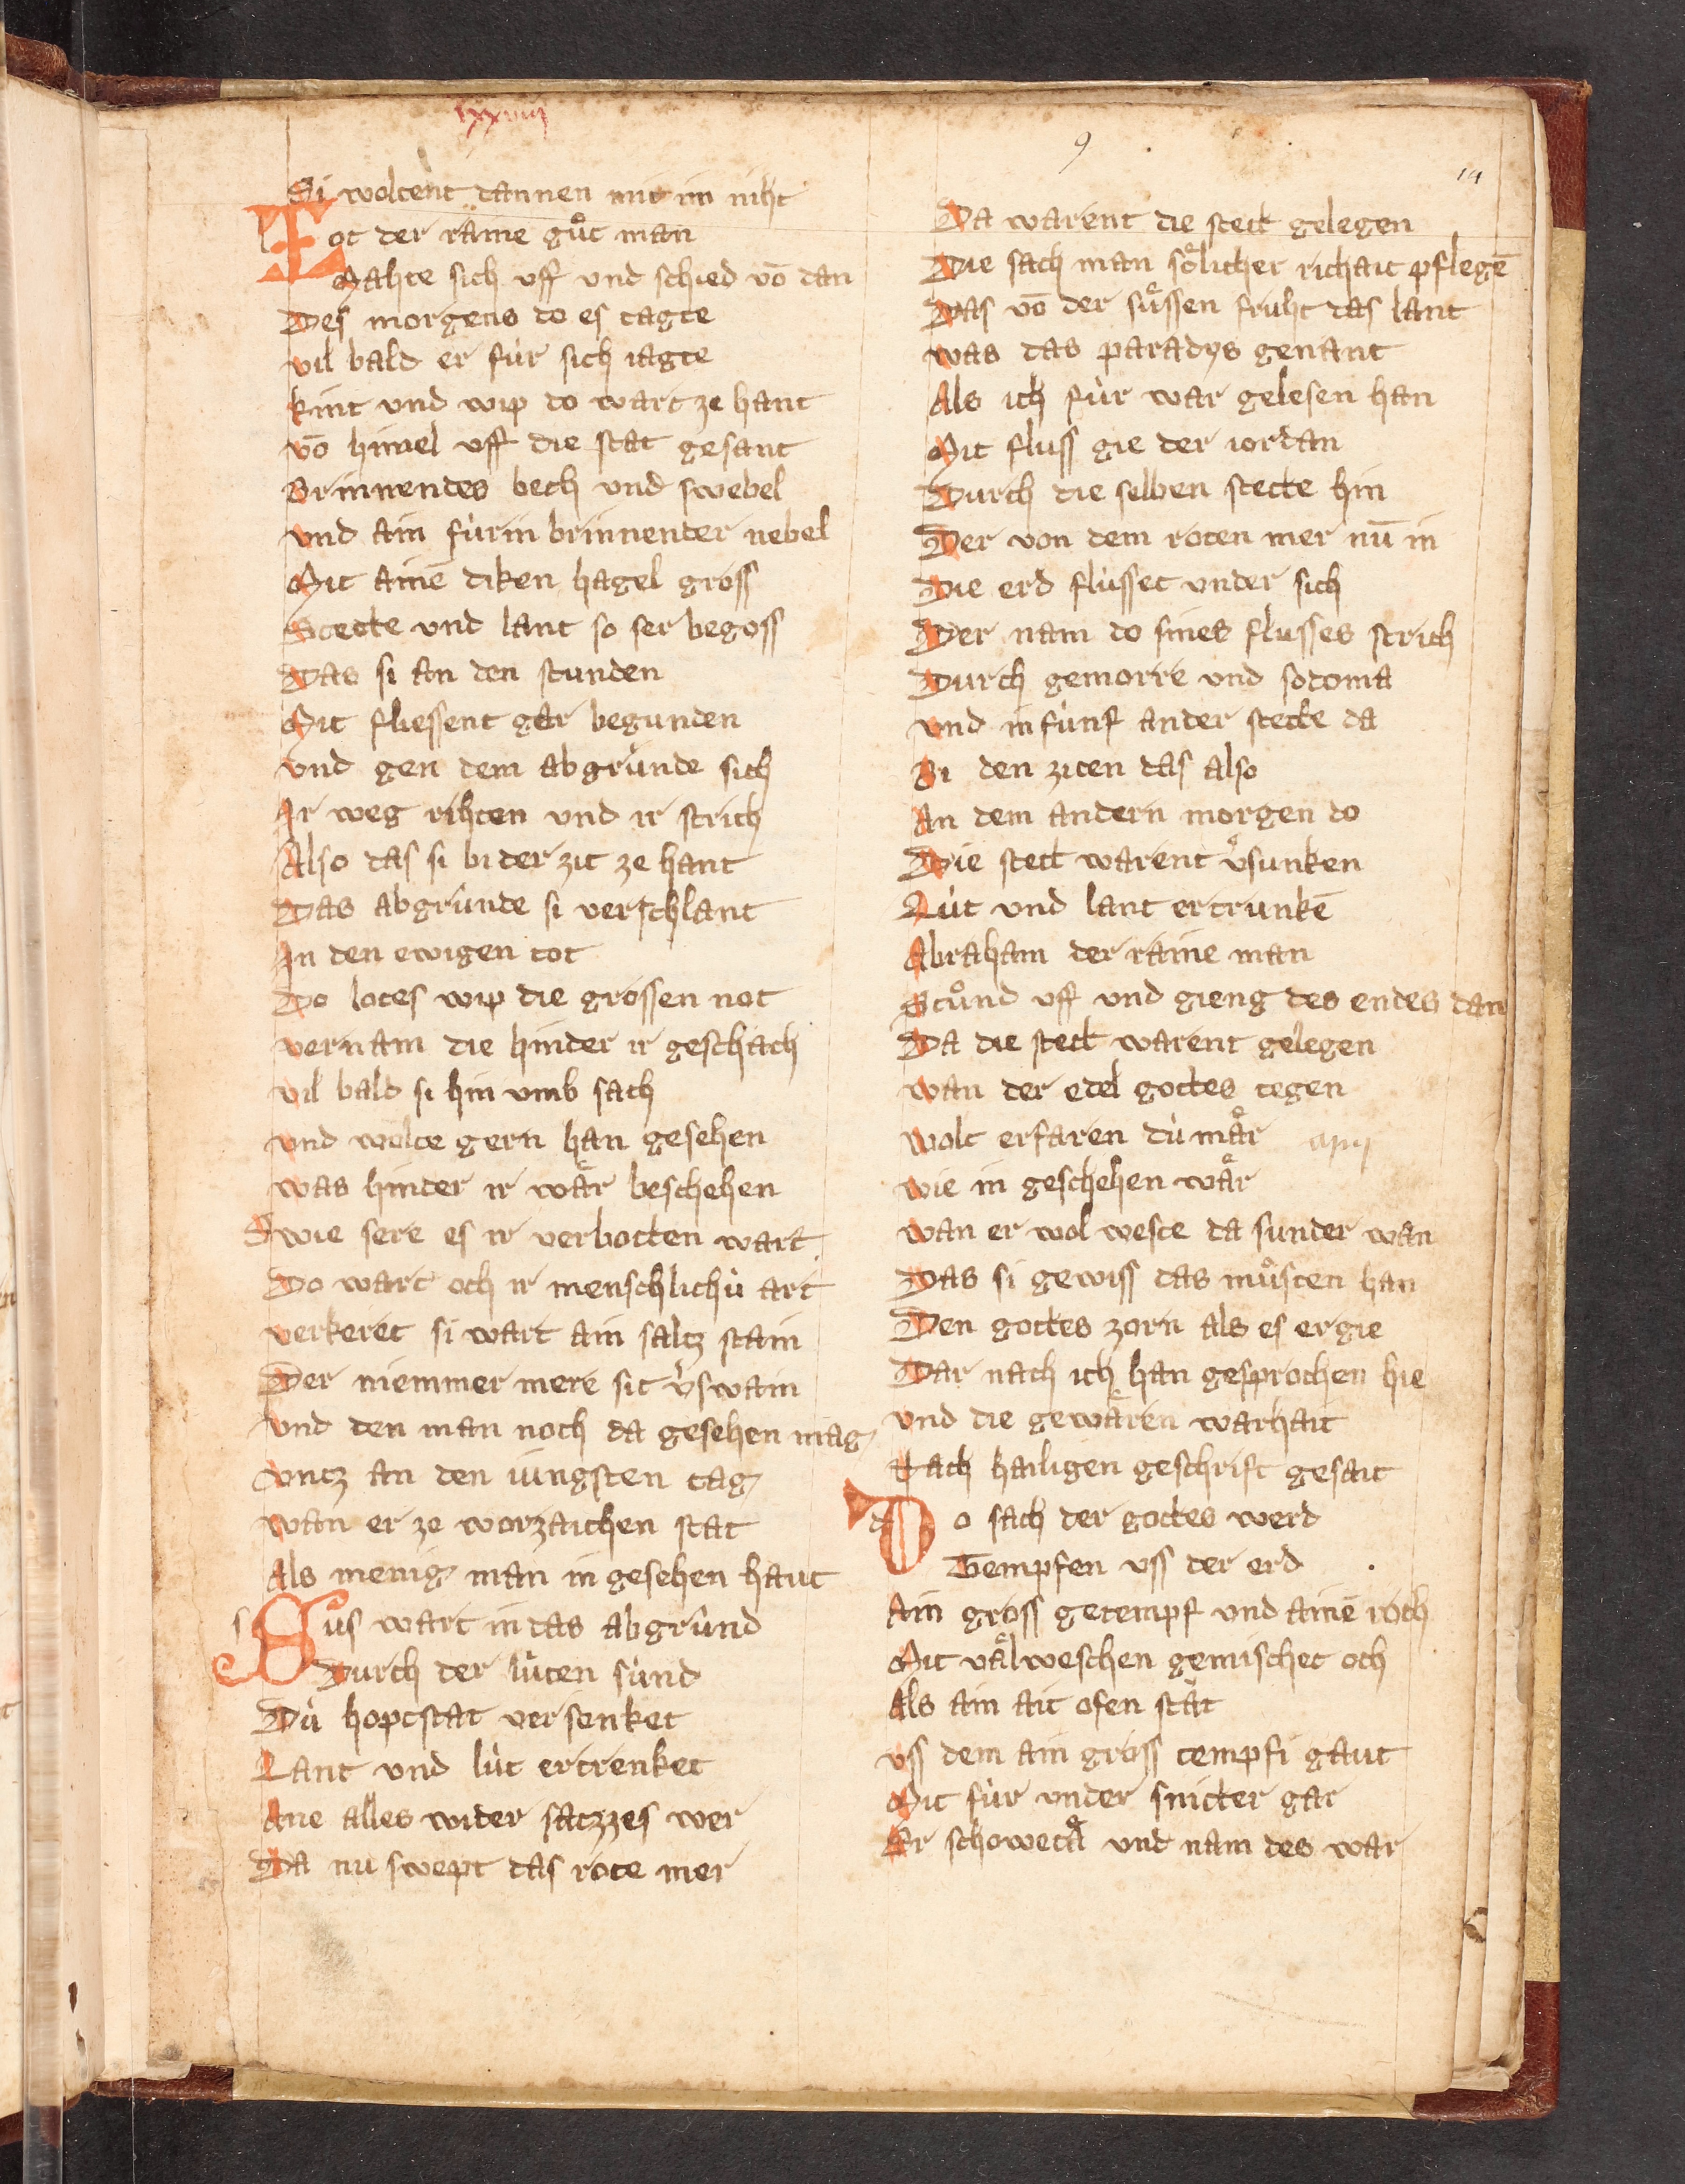 lxxviiij
9
14
Si woltent dannen mit im niht
Lot der raine guͦt man
Mahte sich uff und schied vō dan
Des morgens do es tagte
vil bald er fúr sich iagte
kint und wip do wart ze hant
vō himel uff die stat gesant
Brinnendes bech und swebel
und ain fúrin brinnender nebel
Mit ainē diken hagel gross
Stette und lant so ser begoss
Das si an den stunden
Mit fliessent gar begunden
und gen dem abgrúnde sich
Ir weg rihten und ir strich
Also das si bi der zit ze hant
Das abgrúnde si verschlant
In den ewigen tot
Do lotes wip die grossen not
vernam die hinder ir geschach
vil bald si hin umb sach
und wolte gern han gesehen
was hinder ir waͤr beschehen
Swie sere es ir verbotten wart
Do wart och ir menschlichú art
verkeret si wart ain saltz stain
Der niemmer mere sit v͛swain
und den man noch da gesehen mag
untz an den iungsten tag
wan er ze worzaichen stat
Als menig man in gesehen haut
Sus wart in das abgrúnd
Durch der lúten súnd
Dú hoptstat versenket
Lant und lút ertrenket
Ane alles wider satzzes wer
Da nu swept das rote mer
Da warent die stett gelegen
Die sach man soͤlicher richait pflegē
Das vō der suͤssen fruht das lant
was das paradys genant
Als ich fúr war gelesen han
Mit fluss gie der iordan
Durch die selben stette hin
Der von dem roten mer nū in
Die erd flússet under sich
Der nam do sines flusses strich
Durch gemorre und sodoma
und in fúnf ander stette da
Bi den ziten das also
An dem andern morgen do
Die stett warent v͛sunken
Lút und lant ertrunkē
Abraham der raine man
Stuͦnd uff und gieng des endes dan
Da die stett warent gelegen
wan der edel gottes tegen
wolt erfaren dú maͤr
wie in geschehen waͤr
wan er wol weste da sunder wan
Das si gewiss das muͤsten han
Den gottes zorn als es ergie
Dar nach ich han gesprochen hie
und die gewaͤren warhait
Nach hailigen geschrift gesait
Do sach der gottes werd
Tempfen uss der erd
Ain gross getempf und ainē roch
Mit vaͤlweschen gemischet och
Als ain ait ofen stát
uss dem ain gross tempfi gaut
Mit fúr under snitter gar
Er schowetaͤ und nam des war